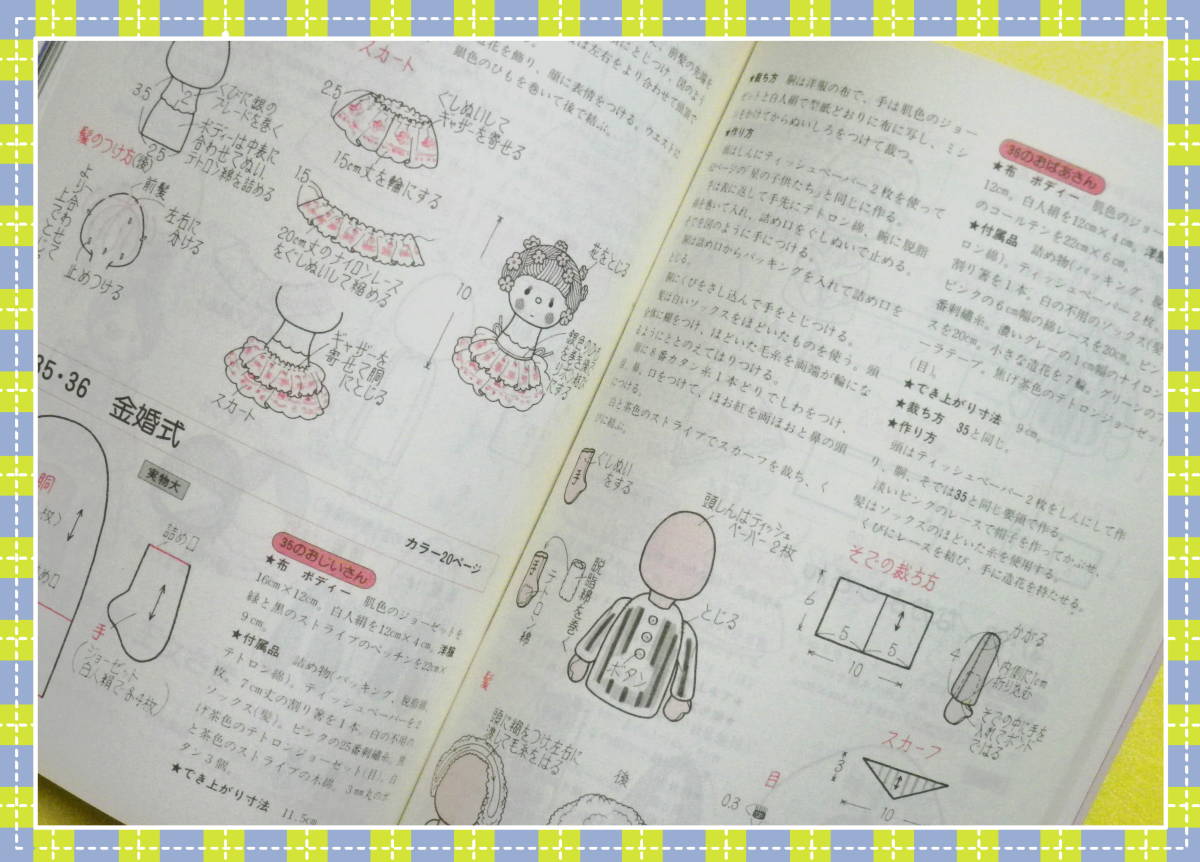 スカート
2.5
ぐしぬいして
ギャザーを寄せる
15cm丈を輪にする
くびに銀の
ブレードを巻く
ボディーは中表に
合わせてぬい、
テトロン綿を詰める
3.5
2.5
髪のつけ方(後)
前髪
左右に
分ける
止めつける
1.5
20cm丈のナイロンレース
をぐしぬいして縮める
10
花をとじる
ギャザーを
寄せて胴
にとじる
スカート
銀色のひもを巻いて後で結ぶ。
35・36
金婚式
実物大
カラー20ページ
胴
詰め口
手
(ジョーゼット
白人絹で各4枚)
35のおじいさん
★布 ボディー 肌色のジョーゼットを
16cm×12cm。白人絹を12cm×4cm。洋服
緑と黒のストライプのベッチンを22cm×
9cm。
★付属品 詰め物(パッキング、脱脂綿、
テトロン綿)。ティッシュペーパーを2
枚。7cm丈の割り箸を1本。白の不用の
ソックス(髪)。ピンクの25番刺繡糸。焦
げ茶色のテトロンジョーゼット(目)。白
と茶色のストライプの木綿。3mm丈のボ
タン3個。
★でき上がり寸法 11.5cm
★裁ち方 胴は洋服の布で、手は肌色のジョー
ゼットと白人絹で型紙どおりに布に写し、ミシ
ンをかけてからぬいしろをつけて裁つ。
★作り方
頭はしんにティッシュペーパー2枚を使って
ページの「星の子供たち」と同じに作る。
手は表に返して手先にテトロン綿、腕に脱脂
綿を巻いて入れ、詰め口をぐしぬいで止める。
そで図のように手につける。
胴は詰め口からパッキングを入れて詰め口を
とじる。
胴にくびをさし込んで手をとじつける。
髪は白いソックスをほどいたものを使う。頭
全体に糊をつけ、ほどいた毛糸を両端が輪にな
るようにととのえてはりつける。
顔に8番カタン糸1本どりでしわをつけ、
目、鼻、口をつけて、ほお紅を両ほおと鼻の頭
につける。
白と茶色のストライプでスカーフを裁ち、く
びに結ぶ。
手
ぐしぬい
をする
テトロン綿
脱脂綿を巻く
頭しんはティッシュ
ペーパー2枚
とじる
ボタン
髪
頭に糊をつけ、左右に
渡して毛糸をはる
後
目
0.3
36のおばあさん
★布 ボディー 肌色のジョー
12cm。白人絹を12cm×4cm。洋服
のコールテンを22cm×6cm。
★付属品 詰め物(パッキング、脱
ロン綿)。ティッシュペーパー2枚。
割り箸を1本。白の不用のソックス(髪
ピンクの6cm幅の綿レースを20cm。ピン
番刺繡糸。濃いグレーの1cm幅のナイロン
スを20cm。小さな造花を7輪。グリーンのフ
ーラテープ。焦げ茶色のテトロンジョーゼット
(目)。
★でき上がり寸法 9cm。
★裁ち方 35と同じ。
★作り方
頭はティッシュペーパー2枚をしんにして作
り、胴、そでは35と同じ要領で作る。
淡いピンクのレースで帽子を作ってかぶせ、
髪はソックスのほどいた糸を使用する。
くびにレースを結び、手に造花を持たせる。
そでの裁ち方
6
5
5
10
かがる
4
内側に1cm
折り込む
そでの中に手を
入れてボンド
ではる
スカーフ
3
10